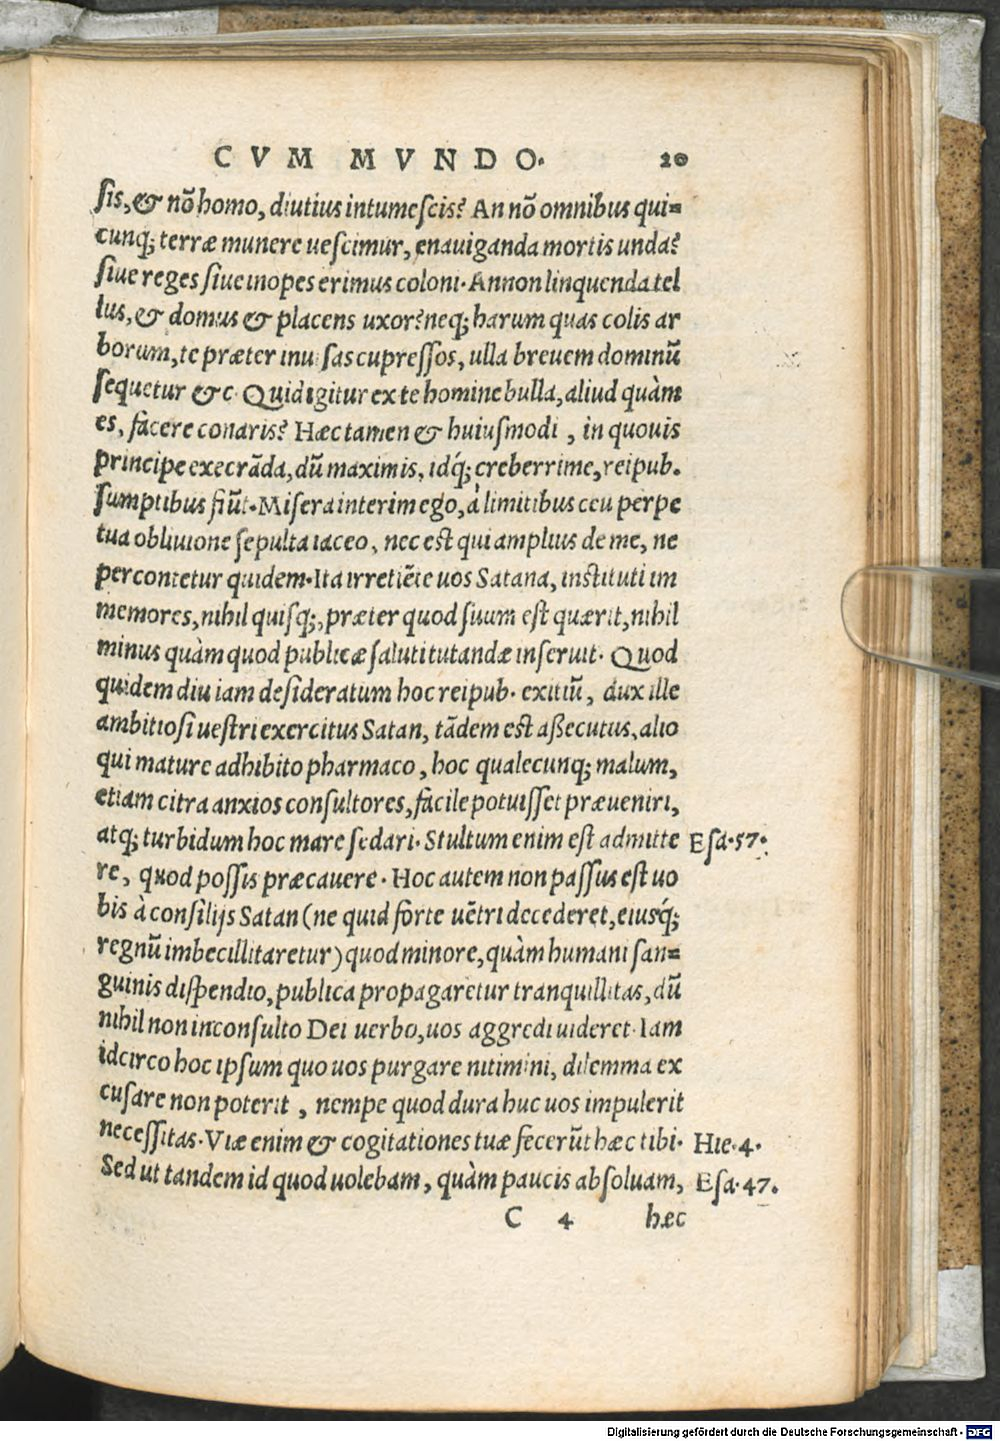 CVM MVNDO. 20
sis, & nō homo, diutius intumescis? An nō omnibus qui=
cunq; terræ munere uescimur, enauiganda mortis unda?
siue reges siue inopes erimus coloni. Annon linquenda tel
lus, & domus & placens uxor? neq; harum quas colis ar
borum, te præter inuisas cupressos, ulla breuem dominū
sequetur &c. Quid igitur ex te homine bulla, aliud quàm
es, facere conaris? Hæc tamen & huiusmodi, in quouis
principe execrāda, dū maximis, idq́; creberrime, reipub.
sumptibus fiūt. Misera interim ego, à limitibus ceu perpe
tua obliuione sepulta iaceo, nec est qui amplius de me, ne
percontetur quidem. Ita irretiēte uos Satana, instituti im
memores, nihil quisq;, præter quod suum est quærit, nihil
minus quàm quod publicæ saluti tutandæ inseruit. Quod
quidem diu iam desideratum hoc reipub. exitiū, dux ille
ambitiosi uestri exercitus Satan, tādem est aßecutus, alio
qui mature adhibito pharmaco, hoc qualecunq; malum,
etiam citra anxios consultores, facile potuisset præueniri,
atq; turbidum hoc mare sedari. Stultum enim est admitte Esa.57.
re, quod possis præcauere. Hoc autem non passus est uo
bis à consilijs Satan (ne quid forte uētri decederet, eiusq́;
regnū imbecillitaretur) quod minore, quàm humani san=
guinis dispendio, publica propagaretur tranquillitas, dū
nihil non inconsulto Dei uerbo, uos aggredi uideret. Iam
idcirco hoc ipsum quo uos purgare nitimini, dilemma ex
cusare non poterit, nempe quod dura huc uos impulerit
necessitas. Viæ enim & cogitationes tuæ fecerūt hæc tibi. Hie.4.
Sed ut tandem id quod uolebam, quàm paucis absoluam, Esa.47.
C 4 hæc
Digitalisierung gefördert durch die Deutsche Forschungsgemeinschaft - DFG